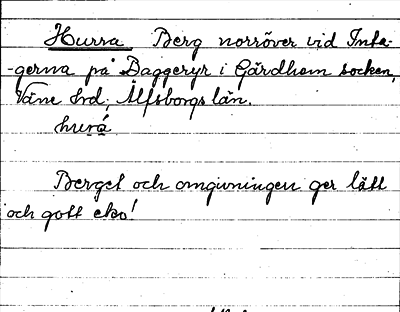 Hurra Berg norröver vid Inta-
-gerna på Daggeryr i Gärdhem socken,
Väne hrd, Älfsborgs län.
hurá
Berget och omgivningen ger lätt
och gott eko!